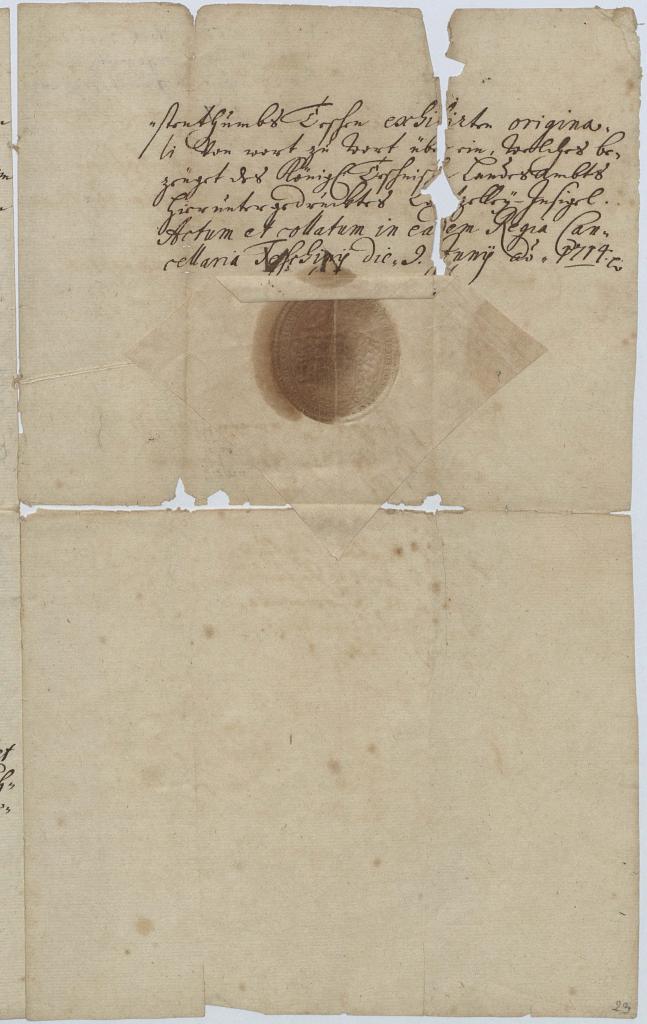 "stenthumbs Teschen exhibirten origina„
li Von wort zu Wort überein, Welches be„
zeüget des Königl Teschnisch Landes Ambts
hierunter gedrucktes Cantzelley-Insigel.
Actum et collatum in eadem Regia Can„
cellaria Teschinij die 9. Junij Ao 1714.
23